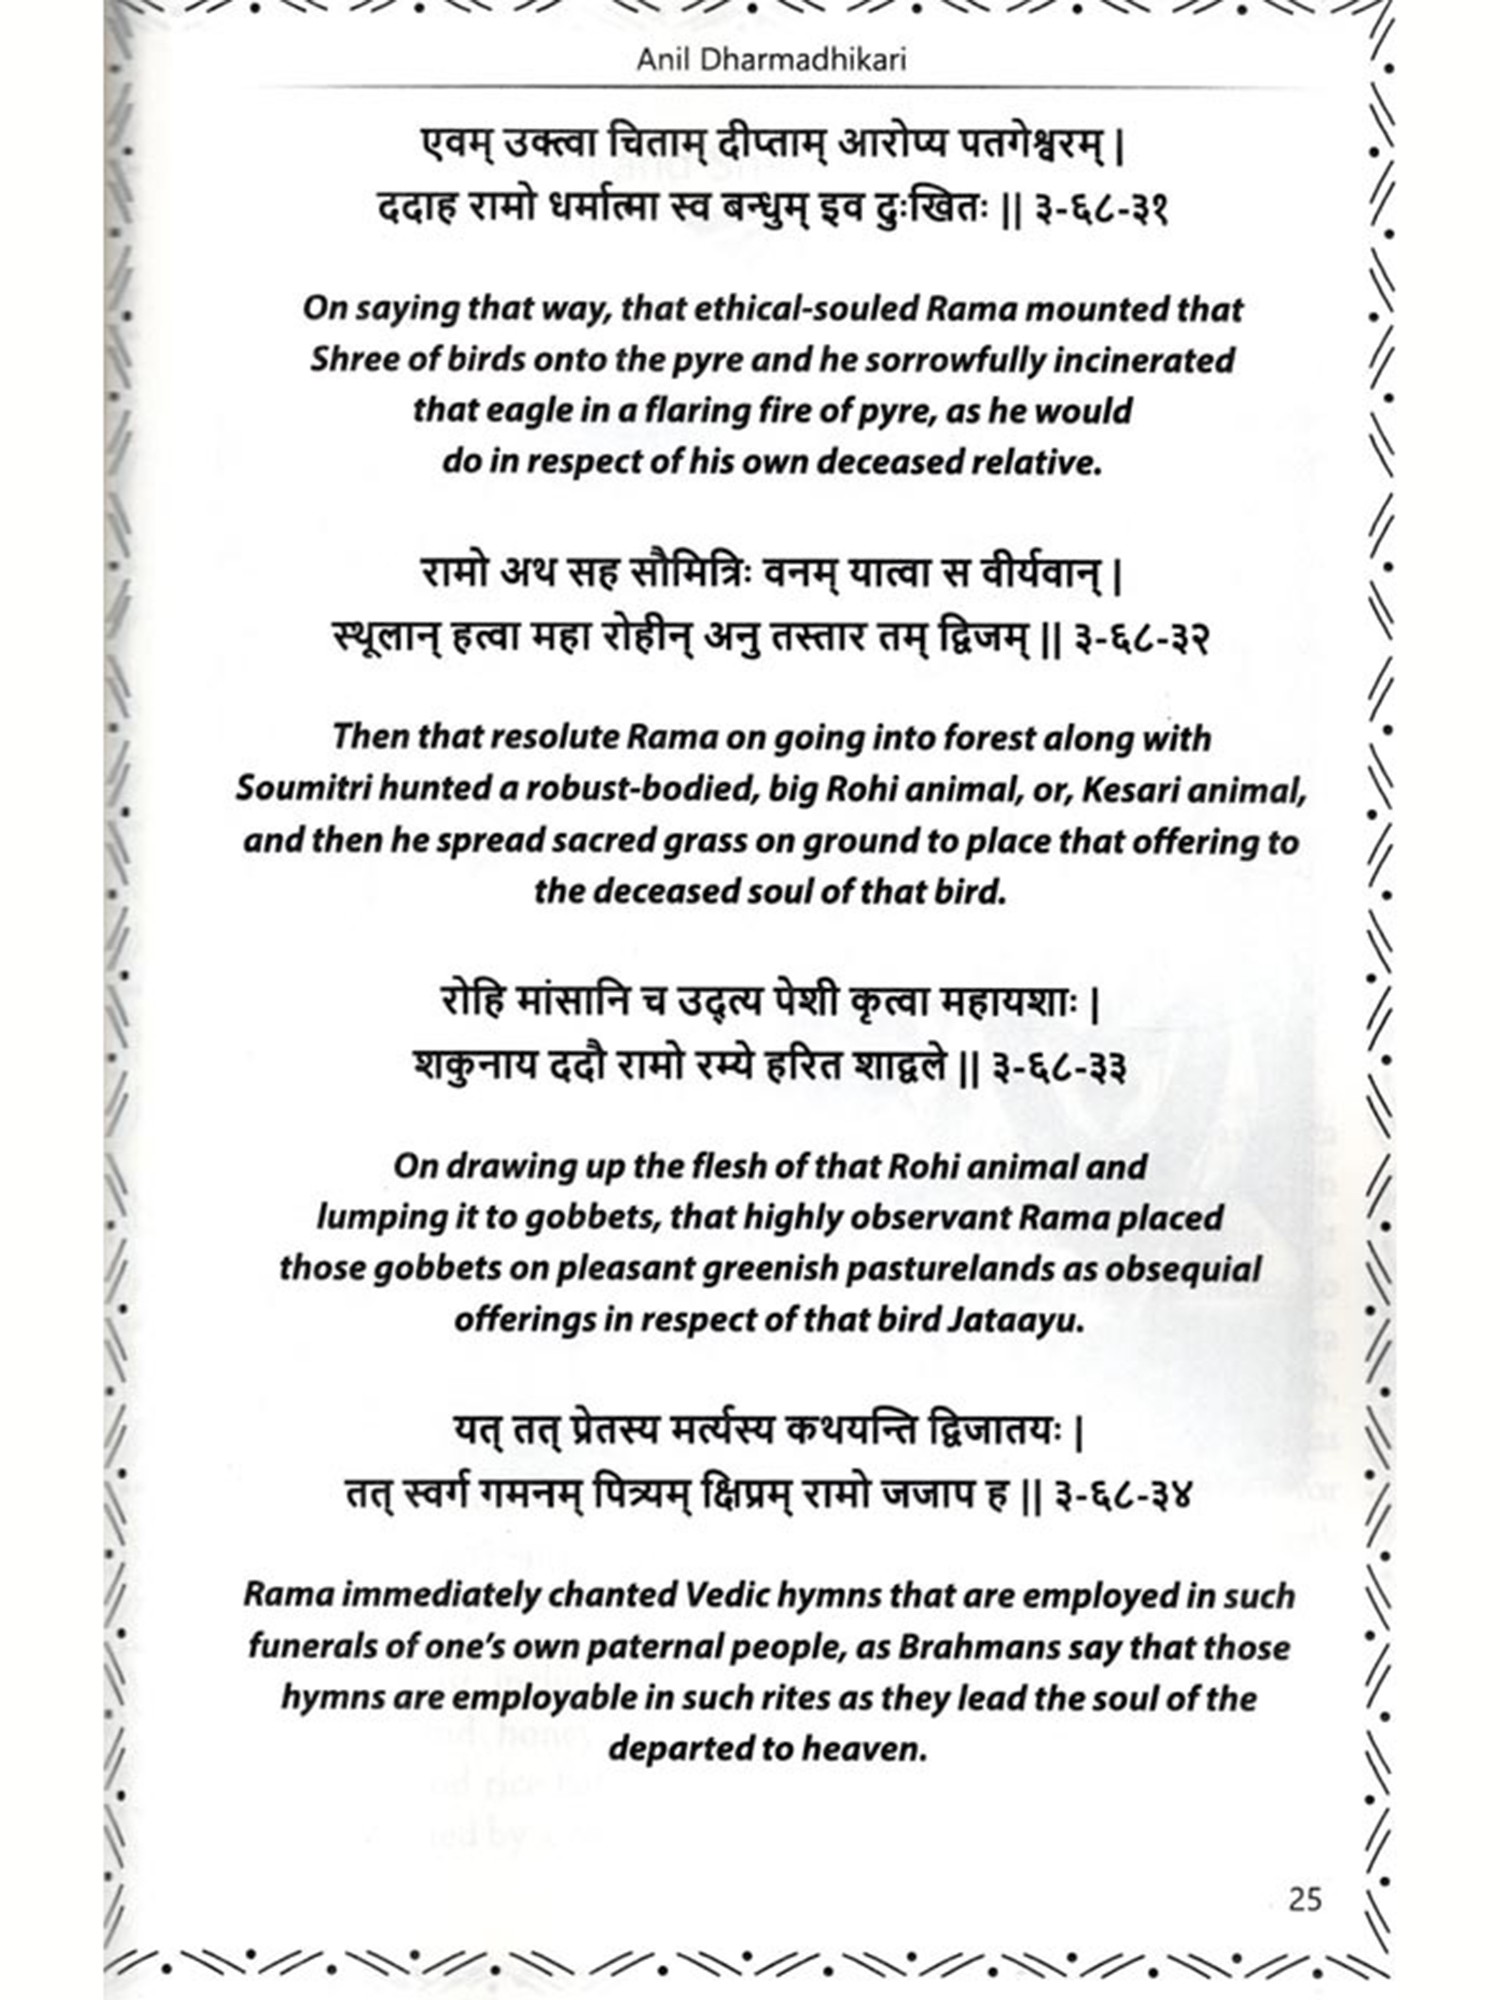 Anil Dharmadhikari
एवम् उक्त्वा चिताम् दीप्ताम् आरोप्य पतगेश्वरम् |
ददाह रामो धर्मात्मा स्व बन्धुम् इव दुःखितः || ३-६८-३१
On saying that way, that ethical-souled Rama mounted that
Shree of birds onto the pyre and he sorrowfully incinerated
that eagle in a flaring fire of pyre, as he would
do in respect of his own deceased relative.
रामो अथ सह सौमित्रिः वनम् यात्वा स वीर्यवान् |
स्थूलान् हत्वा महा रोहीन् अनु तस्तार तम् द्विजम् || ३-६८-३२
Then that resolute Rama on going into forest along with
Soumitri hunted a robust-bodied, big Rohi animal, or, Kesari animal,
and then he spread sacred grass on ground to place that offering to
the deceased soul of that bird.
रोहि मांसानि च उद्त्य पेशी कृत्वा महायशाः |
शकुनाय ददौ रामो रम्ये हरित शाद्वले || ३-६८-३३
On drawing up the flesh of that Rohi animal and
lumping it to gobbets, that highly observant Rama placed
those gobbets on pleasant greenish pasturelands as obsequial
offerings in respect of that bird Jataayu.
यत् तत् प्रेतस्य मर्त्यस्य कथयन्ति द्विजातयः |
तत् स्वर्ग गमनम् पित्र्यम् क्षिप्रम् रामो जजाप ह || ३-६८-३४
Rama immediately chanted Vedic hymns that are employed in such
funerals of one’s own paternal people, as Brahmans say that those
hymns are employable in such rites as they lead the soul of the
departed to heaven.
25